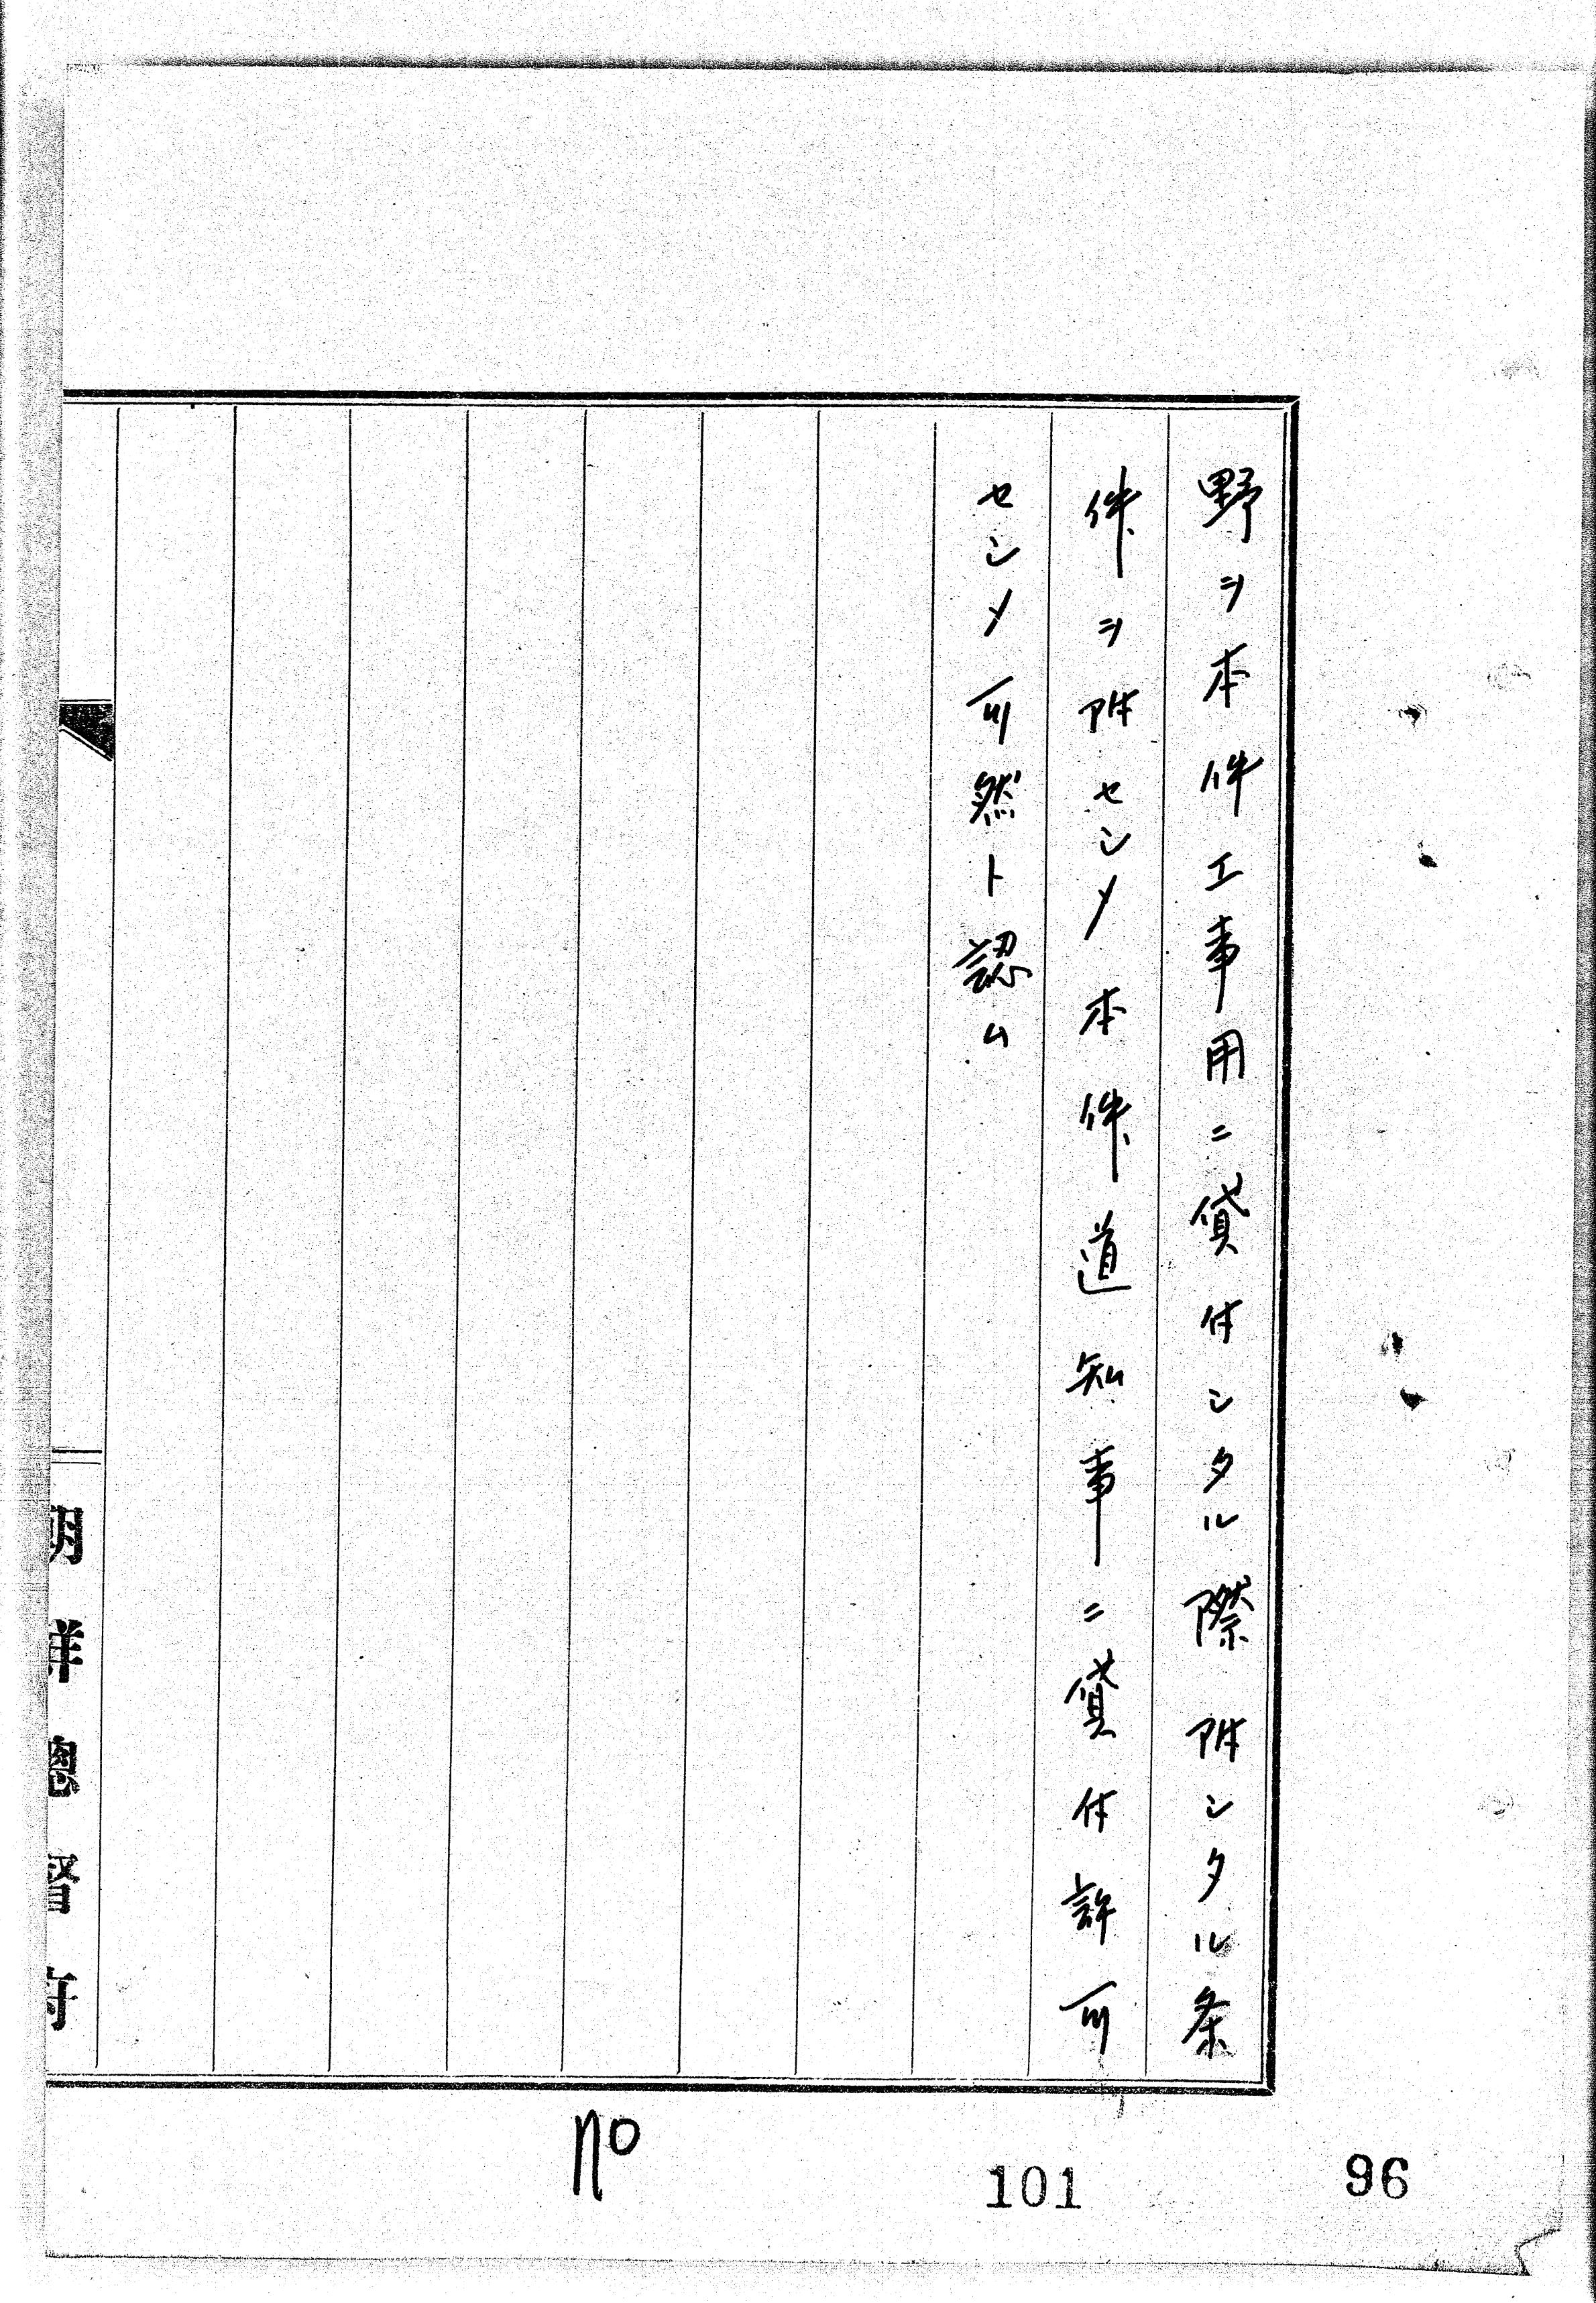 野ヲ本件工事用ニ貸付シタル際附シタル条
件ヲ附セシメ本件道知事ニ貸付許可
セシメ可然ト認ム
朝鮮總督府
101
96